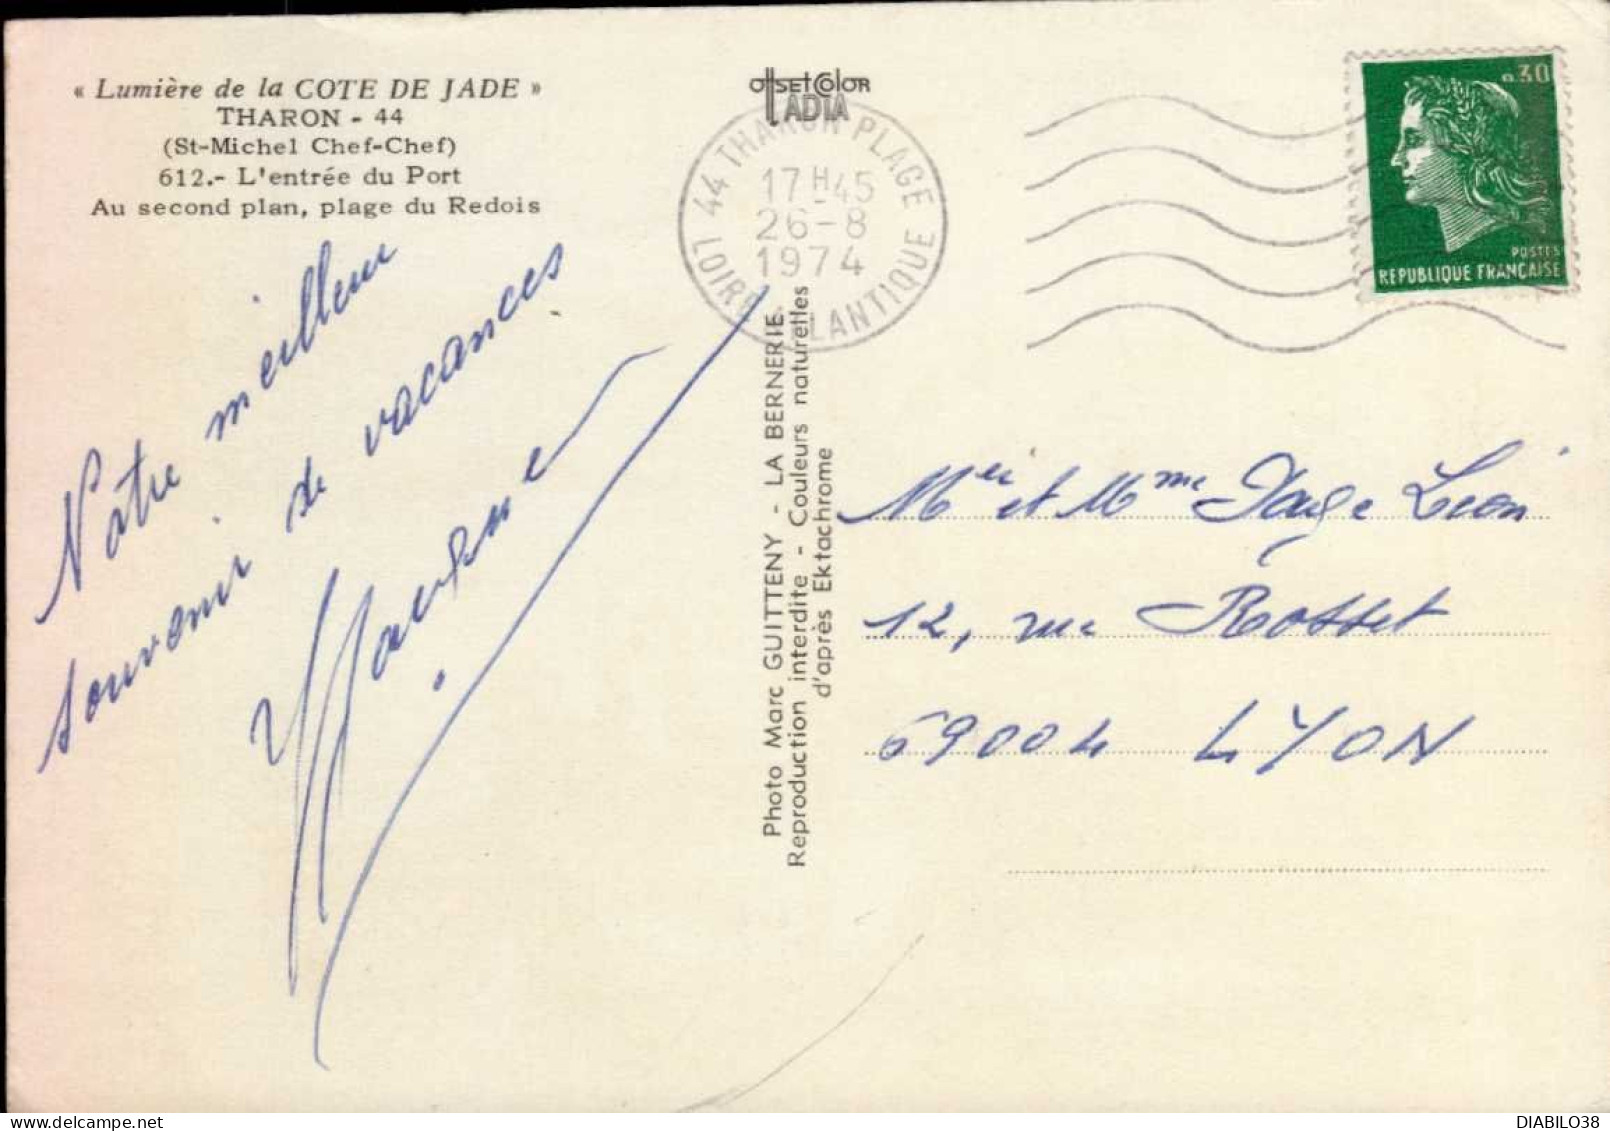 « Lumière de la COTE DE JADE »
THARON - 44
(St-Michel Chef-Chef)
612.- L'entrée du Port
Au second plan, plage du Redois
Notre meilleur
souvenir de vacances
OffsetColor
IADIA
44 THARON PLAGE
17H45
26-8
1974
LOIRE ATLANTIQUE
0,30
POSTES
REPUBLIQUE FRANÇAISE
Photo Marc GUITTENY - LA BERNERIE
Reproduction interdite - Couleurs naturelles
d'après Ektachrome
et Mme Léon
12, rue Rosset
69004 LYON
DIABILO38